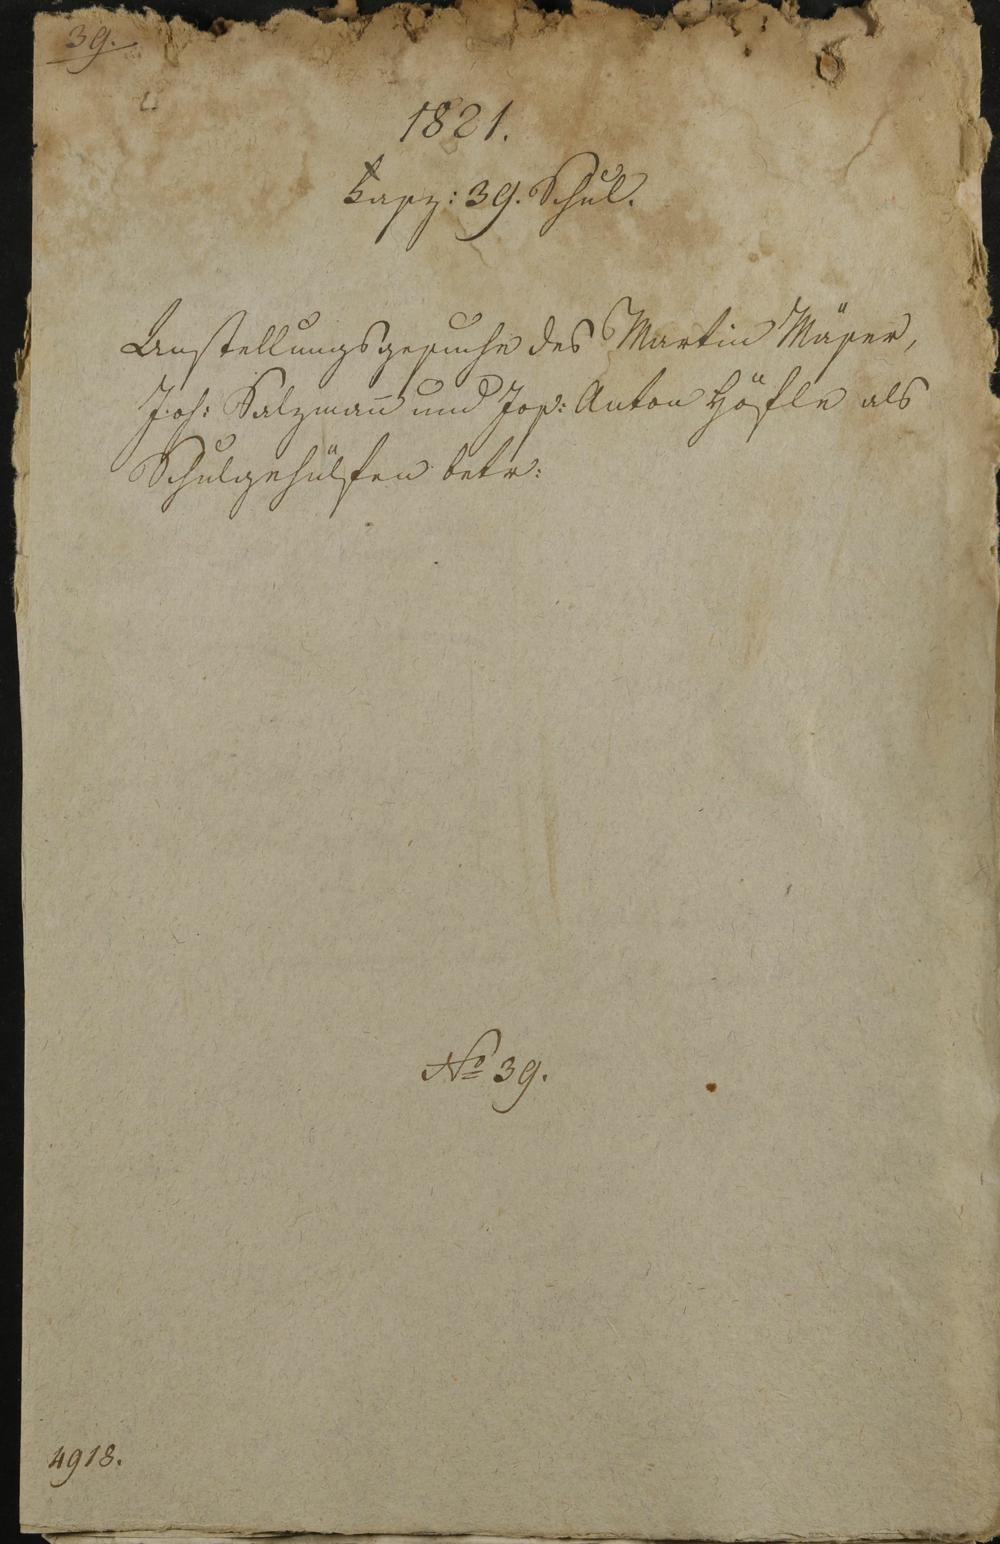 39.
1821.
Fasz: 39. Schul.
Anstellungsgesuche des Martin Mäser,
Joh: Salzmann und Jos: Anton Höfle als
Schulgehülfen betr:
No 39.
4918.